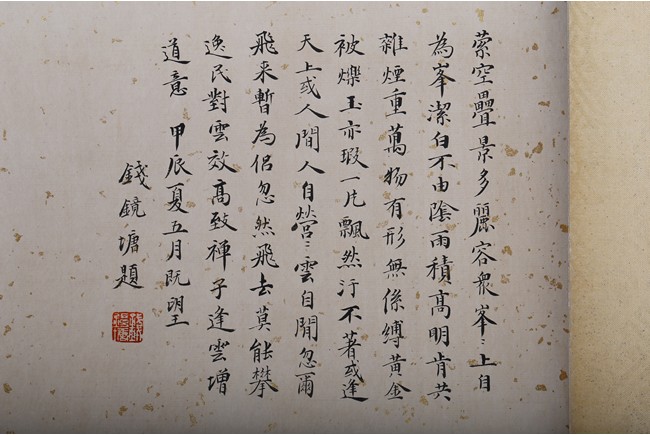 縈空疊景多麗容衆峯〻上自
為峯潔白不由陰雨積高明肯共
雜煙重萬物有形無係縛黃金
被爍玉亦瑕一片飄然汙不著或逢
天上或人間人自營〻雲自閒忽爾
飛来暫為侶忽然飛去莫能攀
逸民對雲效高致禅子逢雲增
道意 甲辰夏五月既朢
錢鏡塘題